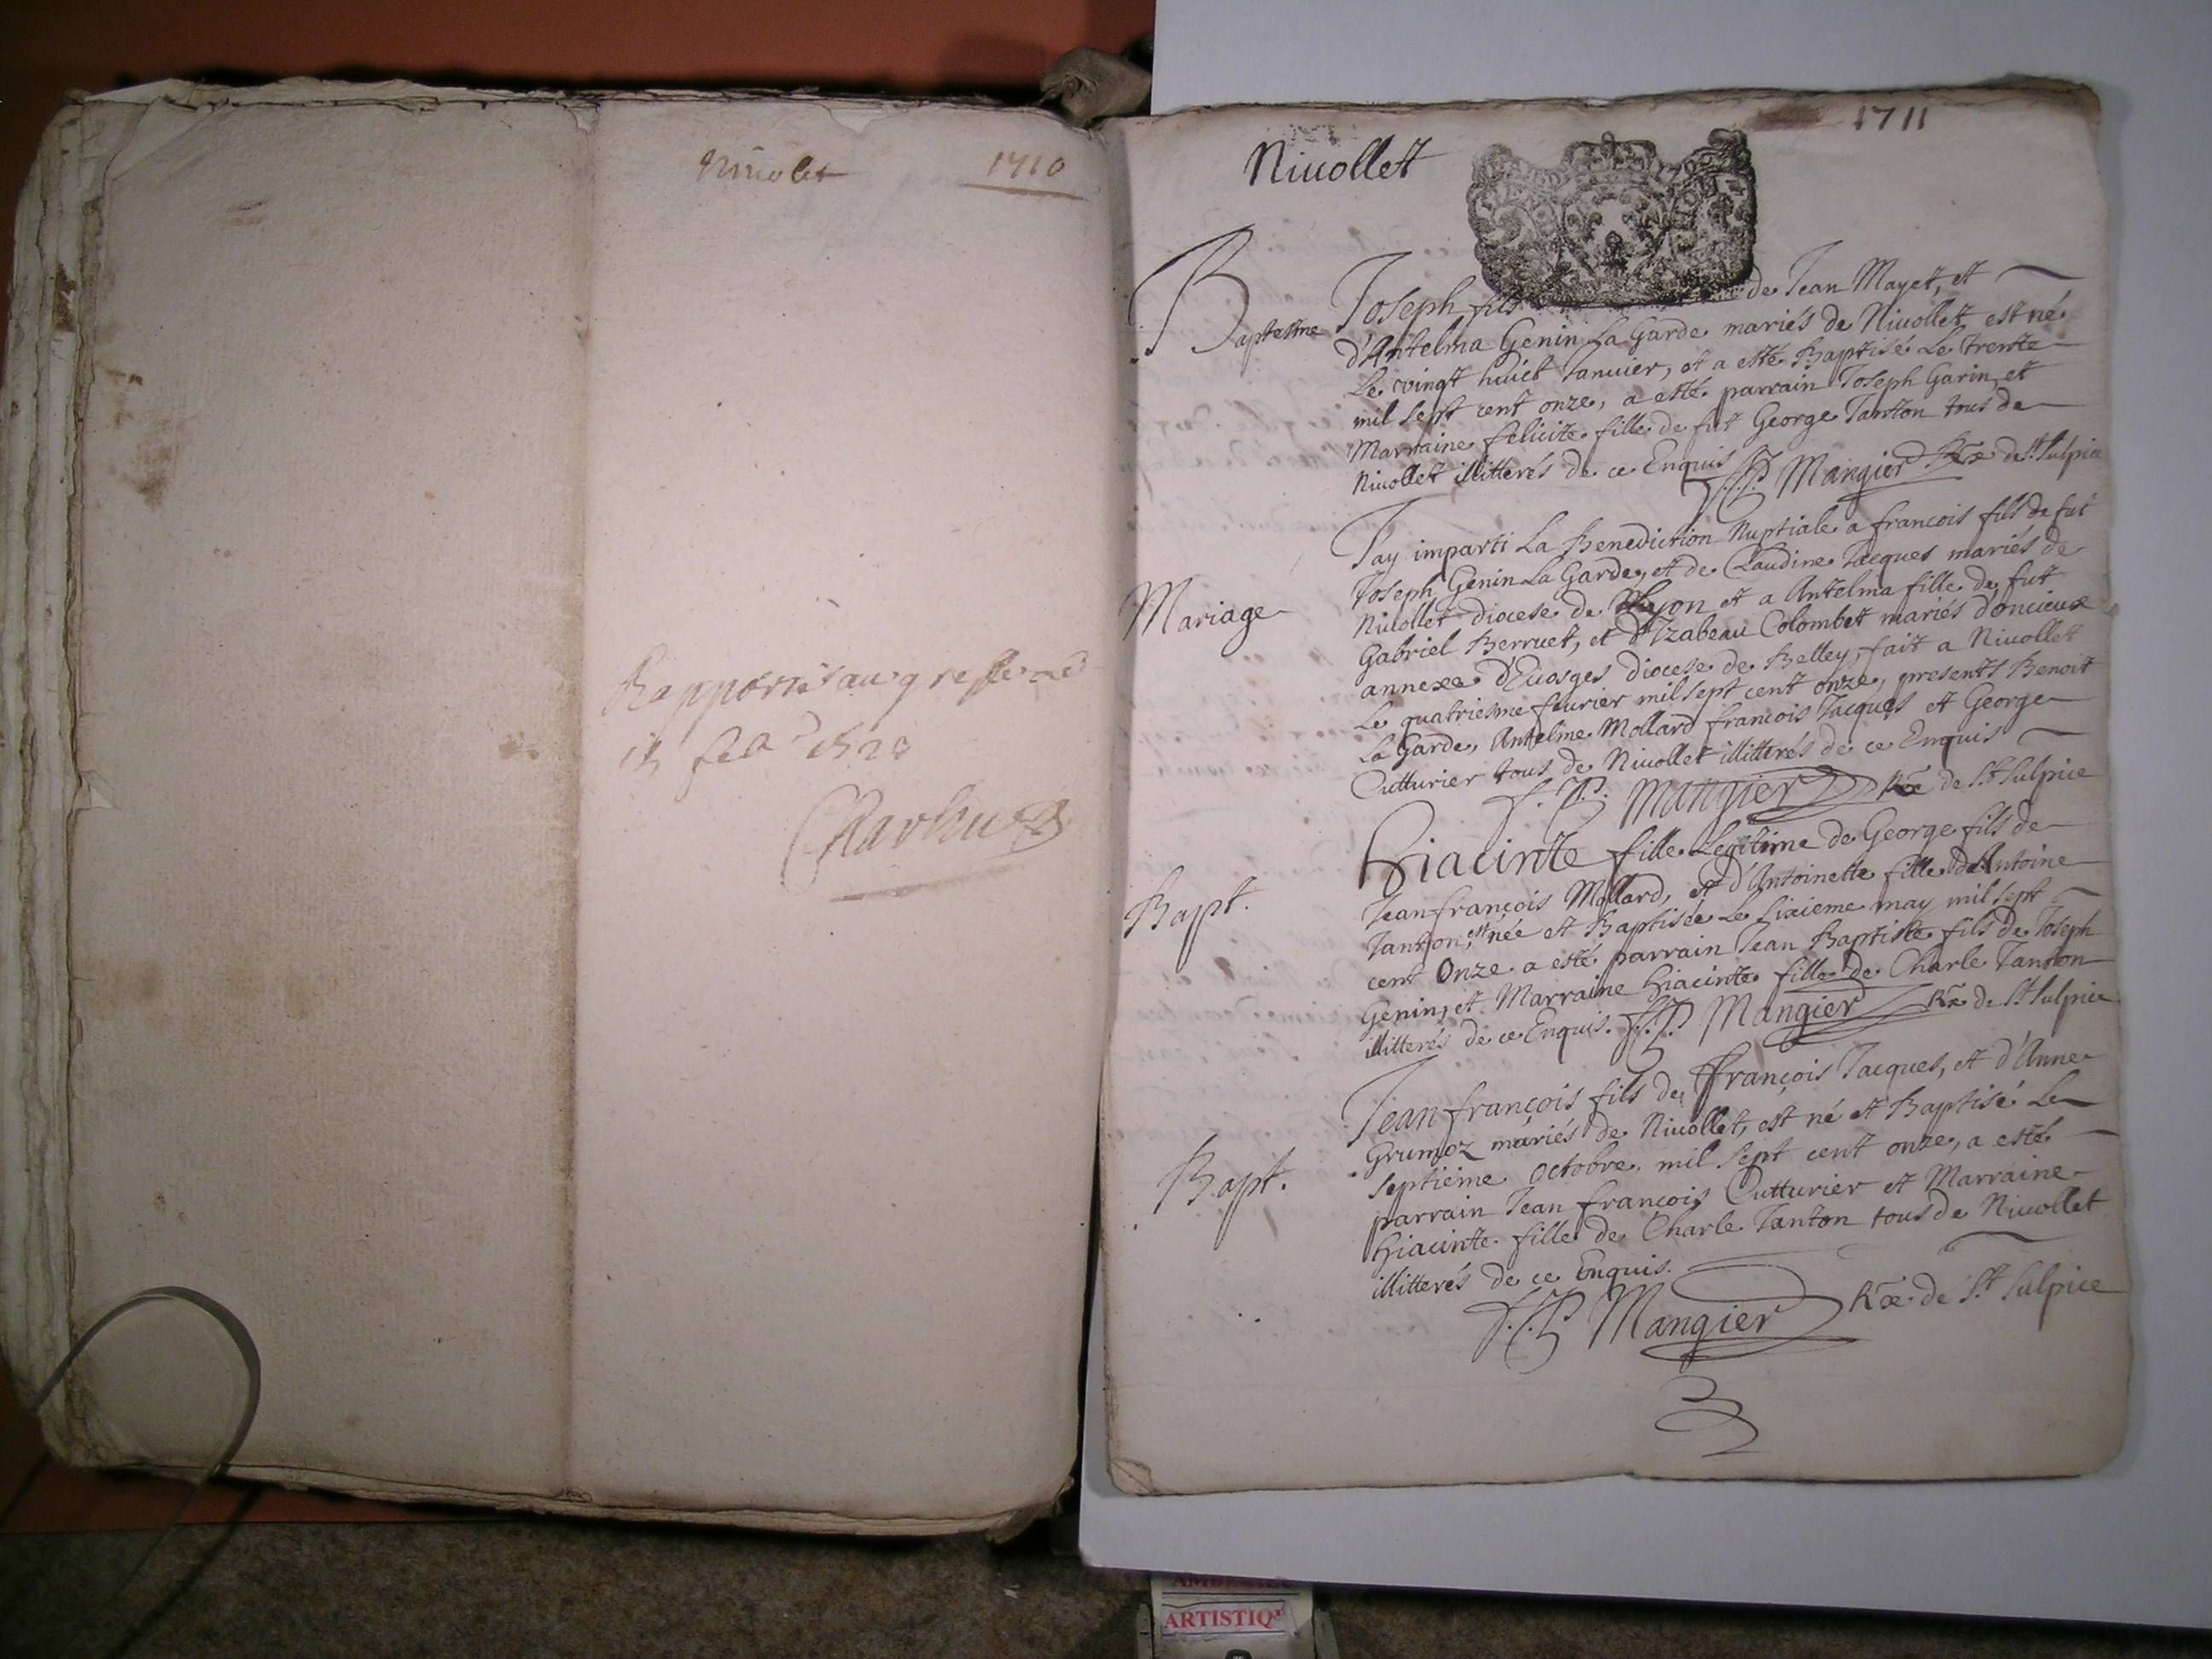 Nivolet 1710
Rapporté au greffe
Nivollett
1711
Baptesme
Joseph fils de Jean Mayet, et
d'Antelma Genin La Garde mariés de Nivollett est né
Le vingt huict Janvier, et a esté Baptisé Le trente
mil sept cent onze, a esté parrain Joseph Garin, et
Marraine felicite fille de fut George Tanton tous de
Nivollet illitterés de ce Enquis Mangier Rx de St Sulpice
Mariage
J'ay imparti La Benediction Nuptiale a francois fils de fut
Joseph Genin La Garde, et de Claudine Jacques mariés de
Nivollet diocese de Lyon et a Antelma fille de fut
Gabriel Berruet, et d'Izabeau Colombet mariés d'oncieux
annexe d'Evosges diocese de Belley, fait a Nivollett
Le quatriesme fevrier mil sept cent onze, presents Benoit
La Garde, Antelme Mollard francois Jacques et George
Cutturier tous de Nivollet illitterés de ce Enquis
Mangier Rx de St Sulpice
Bapt.
Hiacinte fille Legitime de George fils de
Jeanfrançois Mollard, et d'Antoinette fille d'Antoine
Tanton, est née et Baptisée Le sixieme may mil sept
cent Onze a esté parrain Jean Baptiste fils de Joseph
Genin, et Marraine Hiacinte fille de Charle Tanton
illitterés de ce Enquis. Mangier Rx de St Sulpice
Bapt.
Jeanfrançois fils de François Jacques, et d'Anne
Grumoz mariés de Nivollet, est né et Baptisé Le
septiême Octobre mil sept cent onze, a esté
parrain Jean francois Cutturier et Marraine
Hiacinte fille de Charle Tanton tous de Nivollet
illitterés de ce Enquis.
Mangier Rx de St Sulpice
ARTISTIQ